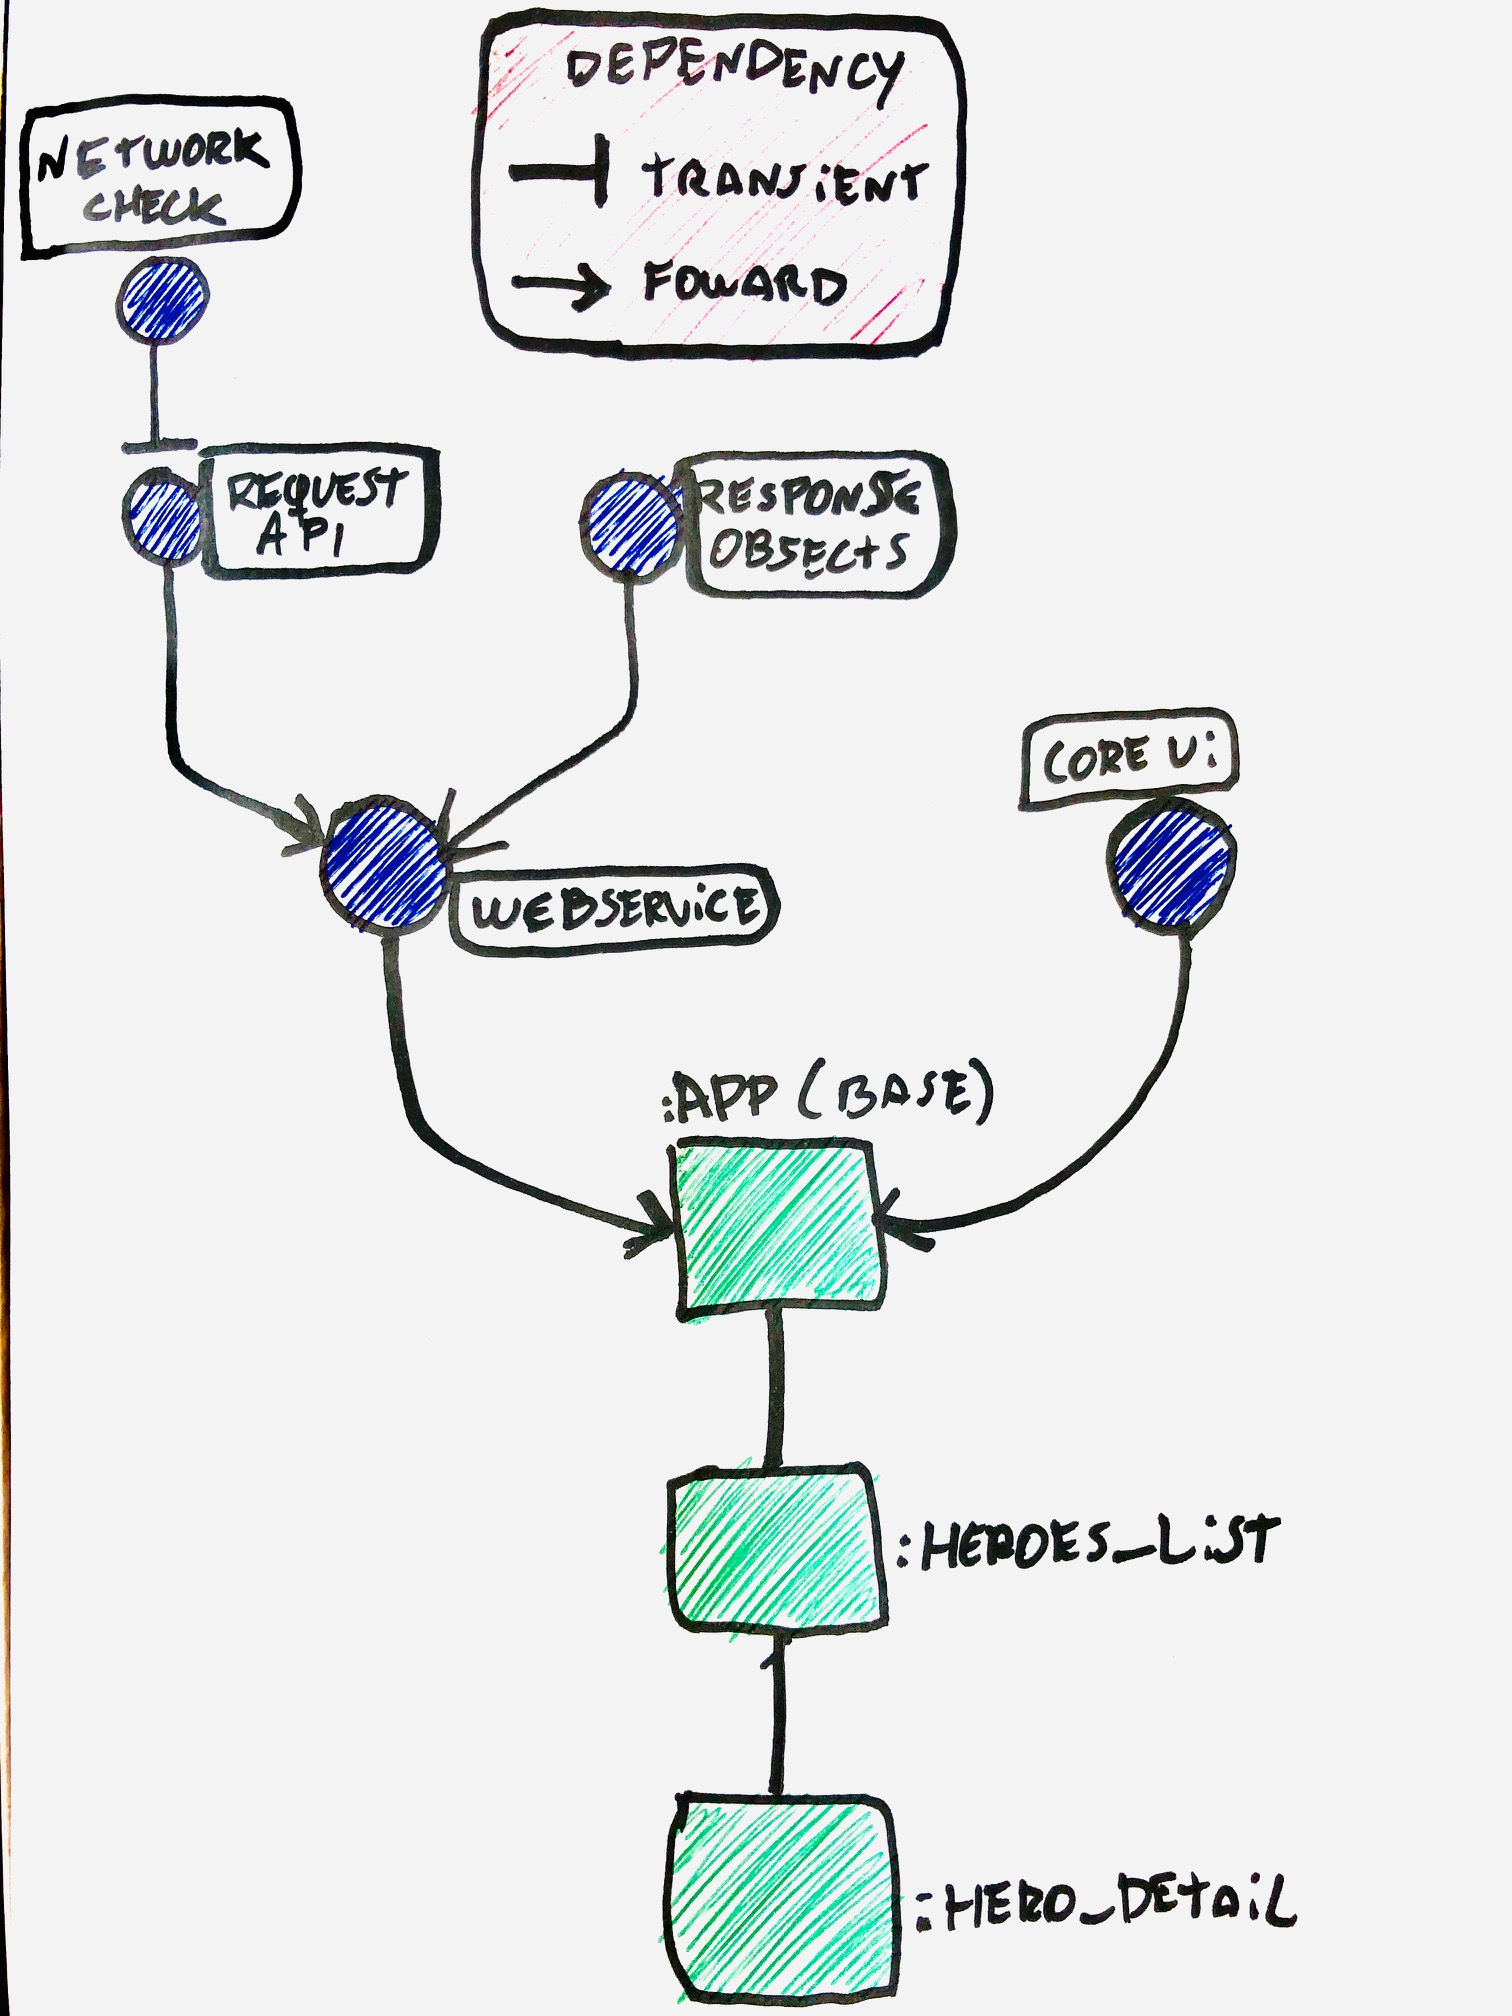 DEPENDENCY
TRANSiENT
FOWARD
NETWORK
CHECK
REQUEST
API
RESPONSE
OBJECTS
CORE Ui
WEBSERViCE
:APP (BASE)
:HEROES_LiST
:HERO_DETAiL